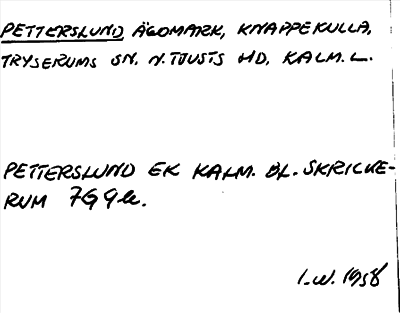 PETTERSLUND, ÄGOMARK, KNAPPEKULLA,
TRYSERUMS SN. N. TJUSTS HD, KALM. L.
PETTERSLUND EK KALM. BL. SKRICKE-
RUM 7G 9h.
I.W. 1958